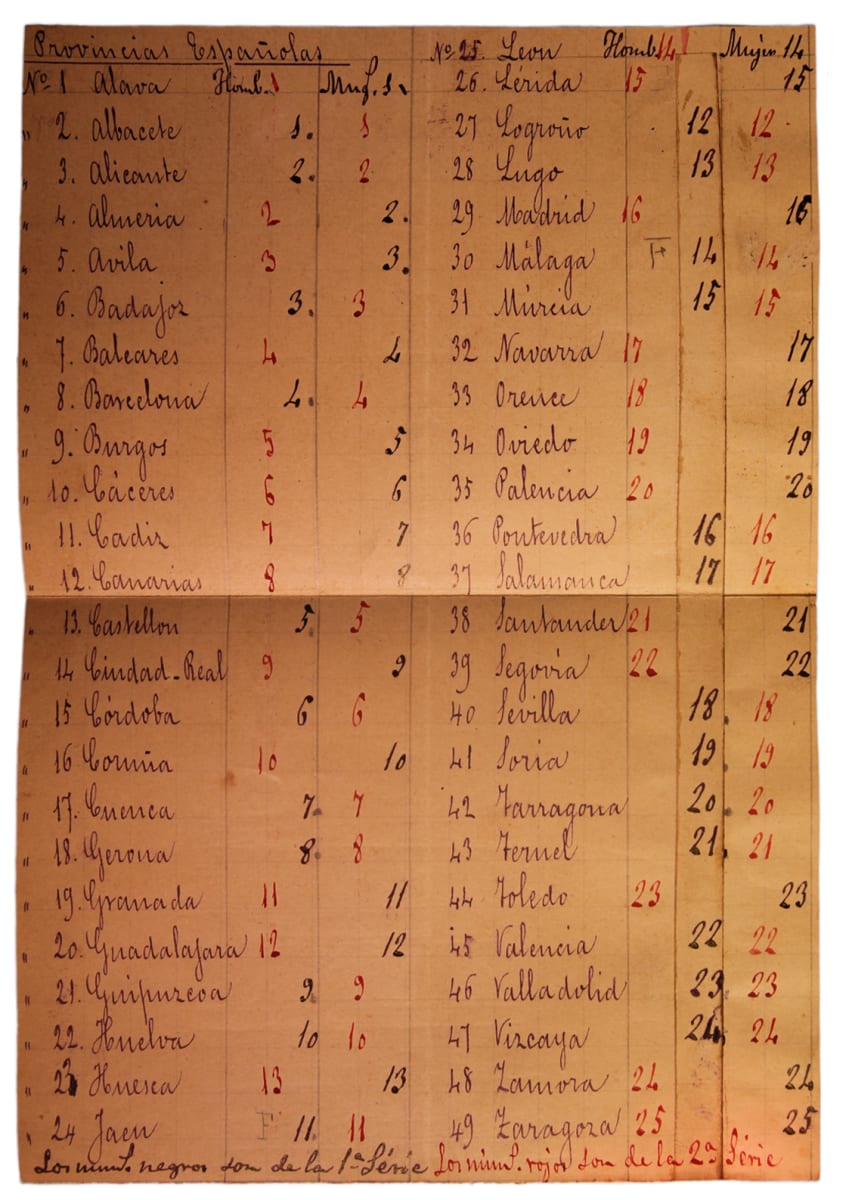 Provincias Españolas
Nº 1 Alava Homb. 1 Muj. 1.
" 2. Albacete 1. 1
" 3. Alicante 2. 2
" 4. Almeria 2 2.
" 5. Avila 3 3.
" 6. Badajoz 3. 3
" 7. Baleares 4 4
" 8. Barcelona 4. 4
" 9. Burgos 5 5
" 10. Cáceres 6 6
" 11. Cadiz 7 7
" 12. Canarias 8 8
" 13. Castellon 5. 5
" 14 Ciudad-Real 9 9
" 15 Córdoba 6 6
" 16 Coruña 10 10
" 17. Cuenca 7. 7
" 18. Gerona 8. 8
" 19. Granada 11 11
" 20. Guadalajara 12 12
" 21. Guipuzcoa 9. 9
" 22. Huelva 10 10
" 23 Huesca 13 13
" 24 Jaen F 11. 11
Nº 25. Leon Homb. 14 Mujer 14
26. Lerida 15 15
27 Logroño 12 12
28 Lugo 13 13
29 Madrid 16 16
30 Málaga F 14 14
31 Múrcia 15 15
32 Navarra 17 17
33 Orence 18 18
34 Oviedo 19 19
35 Palencia 20 20
36 Pontevedra 16 16
37 Salamanca 17 17
38 Santander 21 21
39 Segovia 22 22
40 Sevilla 18. 18
41 Soria 19. 19
42 Tarragona 20. 20
43 Teruel 21. 21
44 Toledo 23 23
45 Valencia 22 22
46 Valladolid 23. 23
47 Vizcaya 24. 24
48 Zamora 24 24
49 Zaragoza 25 25
Los núms. negros son de la 1ª Série Los núms. rojos son de la 2ª Série